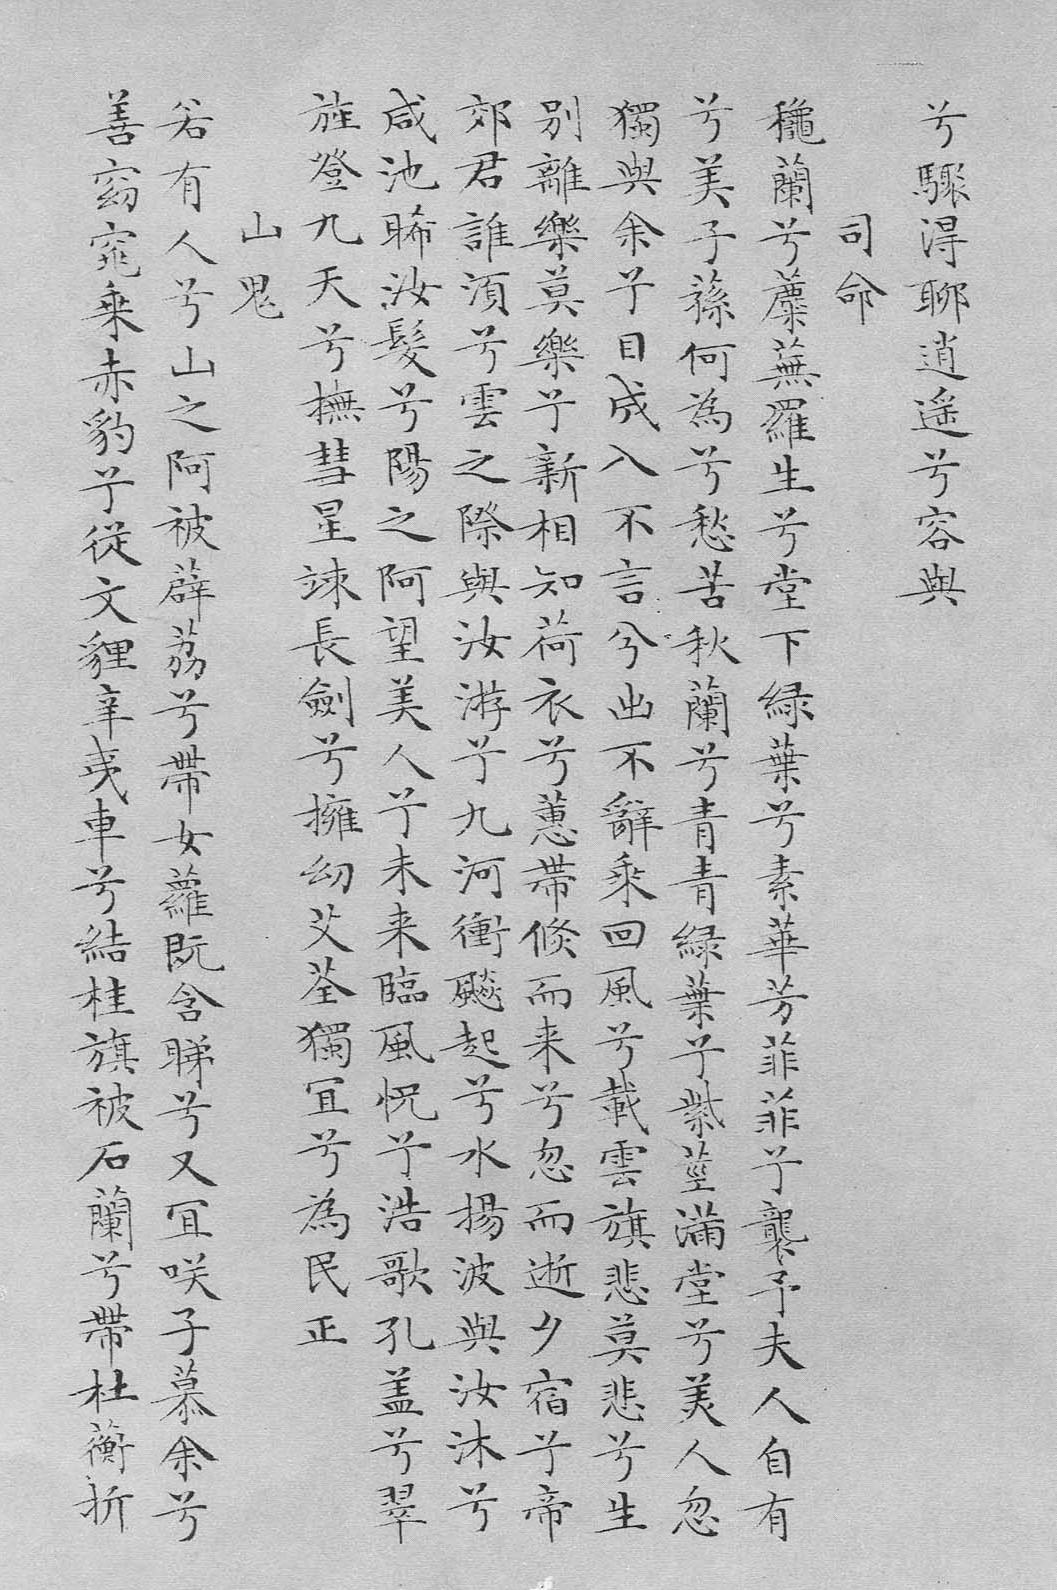 兮驟得聊逍遥兮容與
司命
穐蘭兮蘪蕪羅生兮堂下緑葉兮素華芳菲菲兮襲予夫人自有
兮美子蓀何為兮愁苦秋蘭兮青青緑葉兮紫莖滿堂兮美人忽
獨與余兮目成入不言兮出不辭乘回風兮載雲旗悲莫悲兮生
别離樂莫樂兮新相知荷衣兮蕙帶倏而来兮忽而逝夕宿兮帝
郊君誰須兮雲之際與汝游兮九河衝飈起兮水揚波與汝沐兮
咸池晞汝髮兮陽之阿望美人兮未来臨風怳兮浩歌孔盖兮翠
旌登九天兮撫彗星竦長劍兮擁幼艾荃獨冝兮為民正
山鬼
若有人兮山之阿被薜荔兮帶女蘿既含睇兮又冝咲子慕余兮
善窈窕乘赤豹兮從文貍辛夷車兮結桂旗被石蘭兮帶杜蘅折